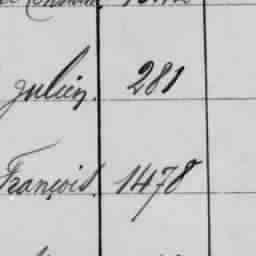 Julien. 281
François. 1478